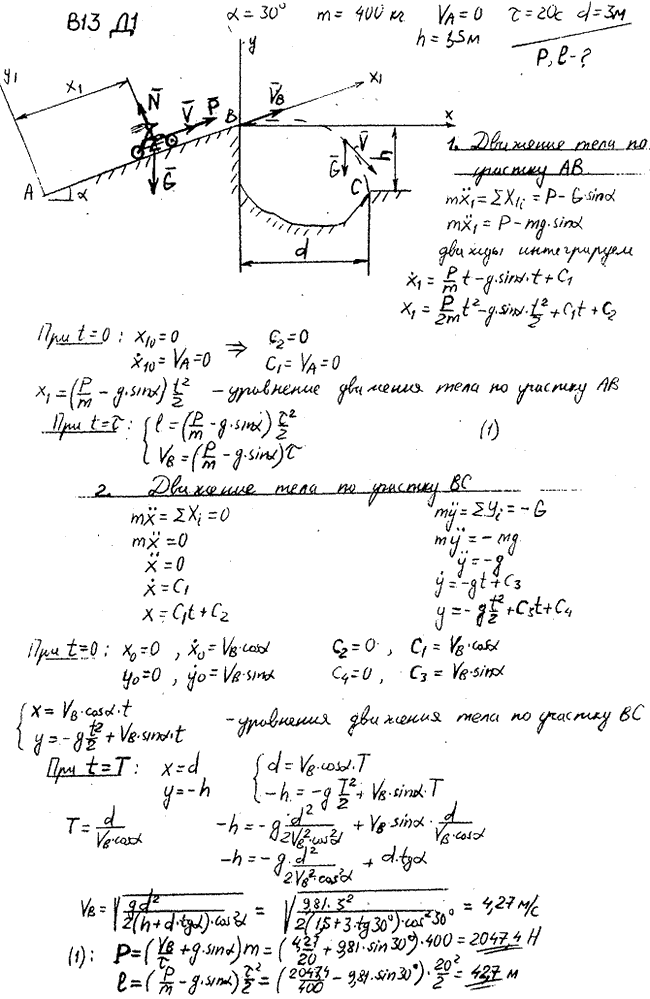 В13 Д1
α = 30° m = 400 кг V_A = 0 τ = 20с d = 3м
h = 1,5м
P, l - ?
y
y₁
x₁
N̄
V̄
P̄
B
V̄_B
x₁
x
V̄
Ḡ
h
C
A
α
Ḡ
d
1. Движение тела по
участку AB
mẍ₁ = ΣX₁ᵢ = P - G·sinα
mẍ₁ = P - mg·sinα
дважды интегрируем
ẋ₁ = P/m t - g·sinα·t + C₁
x₁ = P/2m t² - g·sinα·t²/2 + C₁t + C₂
При t=0: x₁₀ = 0 ⇒ C₂ = 0
ẋ₁₀ = V_A = 0 C₁ = V_A = 0
x₁ = (P/m - g·sinα) t²/2 - уровнение движения тела по участку AB
При t=τ: { l = (P/m - g·sinα) τ²/2 (1)
V_B = (P/m - g·sinα)τ
2. Движение тела по участку BC
mẍ = ΣXᵢ = 0 mÿ = ΣYᵢ = -G
mẍ = 0 mÿ = -mg
ẍ = 0 ÿ = -g
ẋ = C₁ ẏ = -gt + C₃
x = C₁t + C₂ y = -g t²/2 + C₃t + C₄
При t=0: x₀ = 0, ẋ₀ = V_B·cosα C₂ = 0, C₁ = V_B·cosα
y₀ = 0, ẏ₀ = V_B·sinα C₄ = 0, C₃ = V_B·sinα
{ x = V_B·cosα·t
y = -g t²/2 + V_B·sinα·t - уровнения движения тела по участку BC
При t=T: x = d { d = V_B·cosα·T
y = -h -h = -g T²/2 + V_B·sinα·T
T = d/(V_B·cosα) -h = -g·d²/(2V_B²·cos²α) + V_B·sinα·d/(V_B·cosα)
-h = -g·d²/(2V_B²·cos²α) + d·tgα
V_B = √(gd²/(2(h+d·tgα)·cos²α)) = √(9,81·3²/(2(1,5+3·tg30°)·cos²30°)) = 4,27 м/с
(1): P = (V_B/τ + g·sinα)m = (4,27/20 + 9,81·sin30°)·400 = 2047,4 Н
l = (P/m - g·sinα) τ²/2 = (2047,4/400 - 9,81·sin30°)·20²/2 = 42,7 м